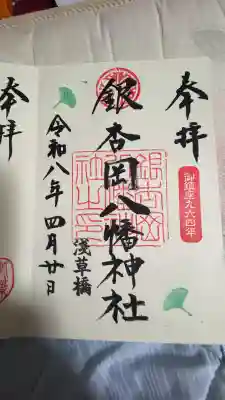 奉拝
御鎮座九六四年
銀杏岡八幡神社
浅草橋
令和八年四月廿日
奉拝